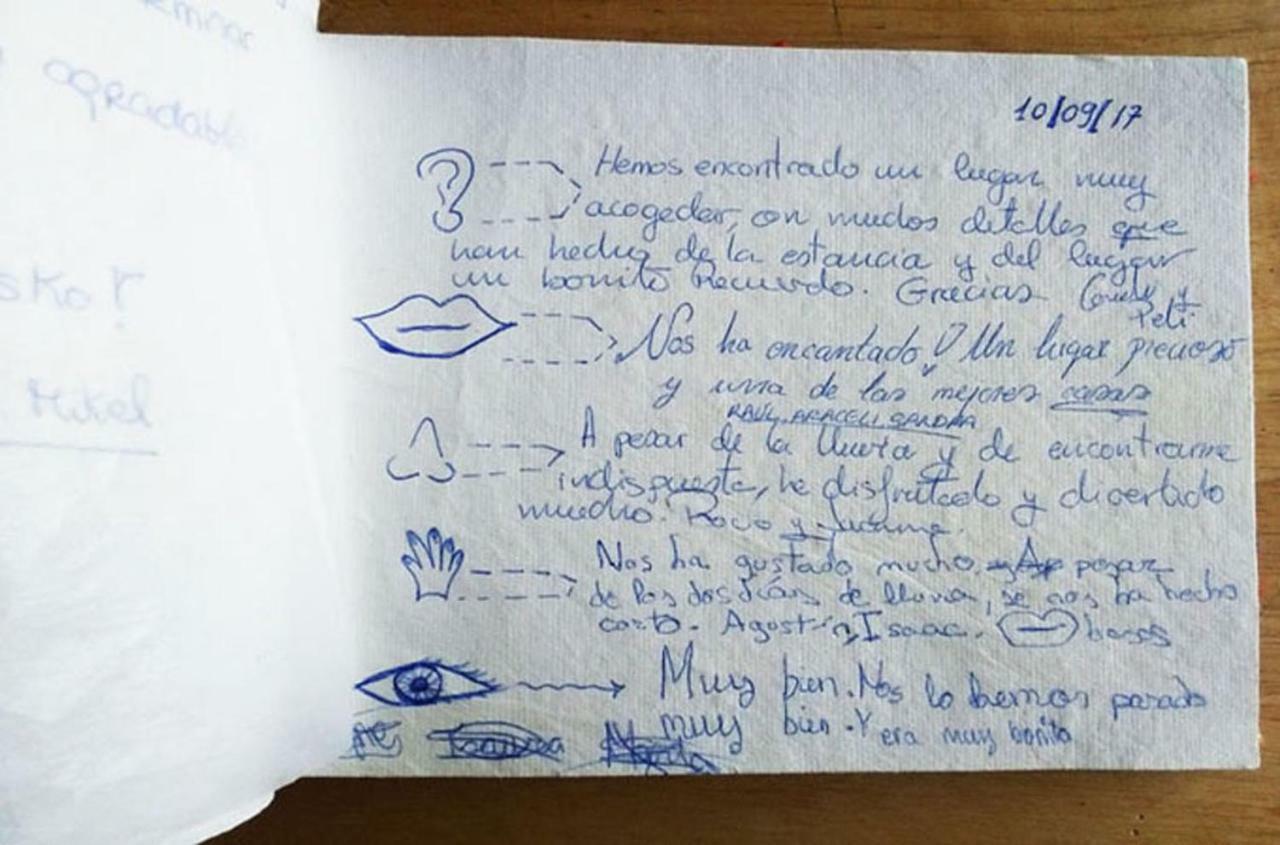 agradable
sko!
Mikel
10/09/17
Hemos encontrado un lugar muy
acogedor, con muchos detalles que
han hecho de la estancia y del lugar
un bonito Recuerdo. Gracias y
Peli
Nos ha encantado! Un lugar precioso
y una de las mejores casas
RAUL, ARACELI, SANDRA
A pesar de la lluvia y de encontrarme
indispuesta, he disfrutado y divertido
mucho. Rocio y
Nos ha gustado mucho. pesar
de los dos días de lluvia, se nos ha hecho
corto. Agustín, Isaac. besos
Muy bien. Nos lo hemos pasado
muy bien. Y era muy bonito